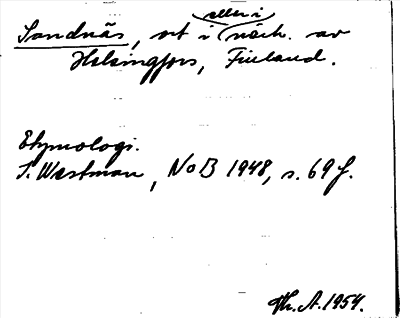 Sandnäs, ort i (eller i närh. av
Helsingfors, Finland.
Etymologi.
I. Westman, NoB 1948, s. 69 f.
Th. A. 1954.